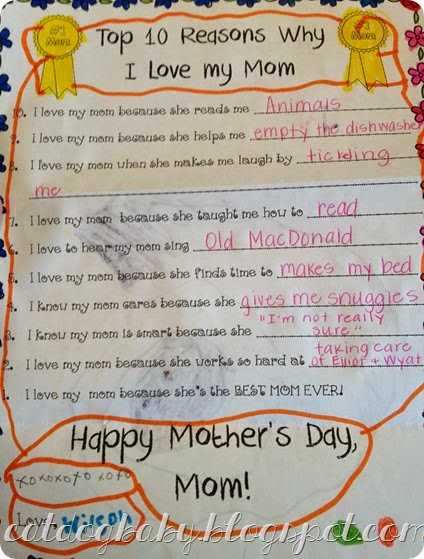 #1 Mom
#1 Mom
Top 10 Reasons Why
I Love my Mom
10. I love my mom because she reads me Animals
9. I love my mom because she helps me empty the dishwasher
8. I love my mom when she makes me laugh by tickling
me
7. I love my mom because she taught me how to read
6. I love to hear my mom sing Old MacDonald
5. I love my mom because she finds time to makes my bed
4. I know my mom cares because she gives me snuggies
3. I know my mom is smart because she "I'm not really
sure"
2. I love my mom because she works so hard at taking care
of Elliot & Wyatt
1. I love my mom because she's the BEST MOM EVER!
Happy Mother's Day,
Mom!
xoxoxoxo xoxo
Love, Wilson
catdogbaby.blogspot.com